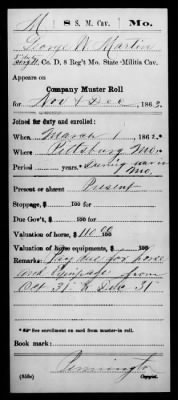 M | 8 S. M. Cav. | Mo.
George W Martin
Sergt, Co. D, 8 Reg't Mo. State Militia Cav.
Appears on
Company Muster Roll
for Nov & Dec, 1863.
Joined for duty and enrolled:
When March 1, 1862.*
Where Pittsburg Mo.
Period during war
Present or absent Present
Stoppage, $ 100 for
Due Gov't, $ 100 for
Valuation of horse, $ 110.00
Valuation of horse equipments, $ 100
Remarks: Pay due for horse
and equipage from
Oct 31 to Dec 31
* See enrollment on card from muster-in roll.
Book mark:
Pennington
(858c) Copyist.